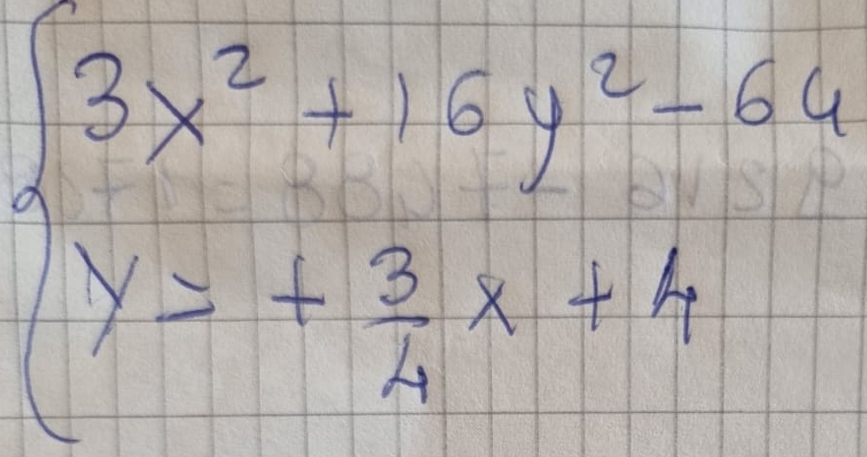 3x² + 16y² - 64
y = + 3/4 x + 4